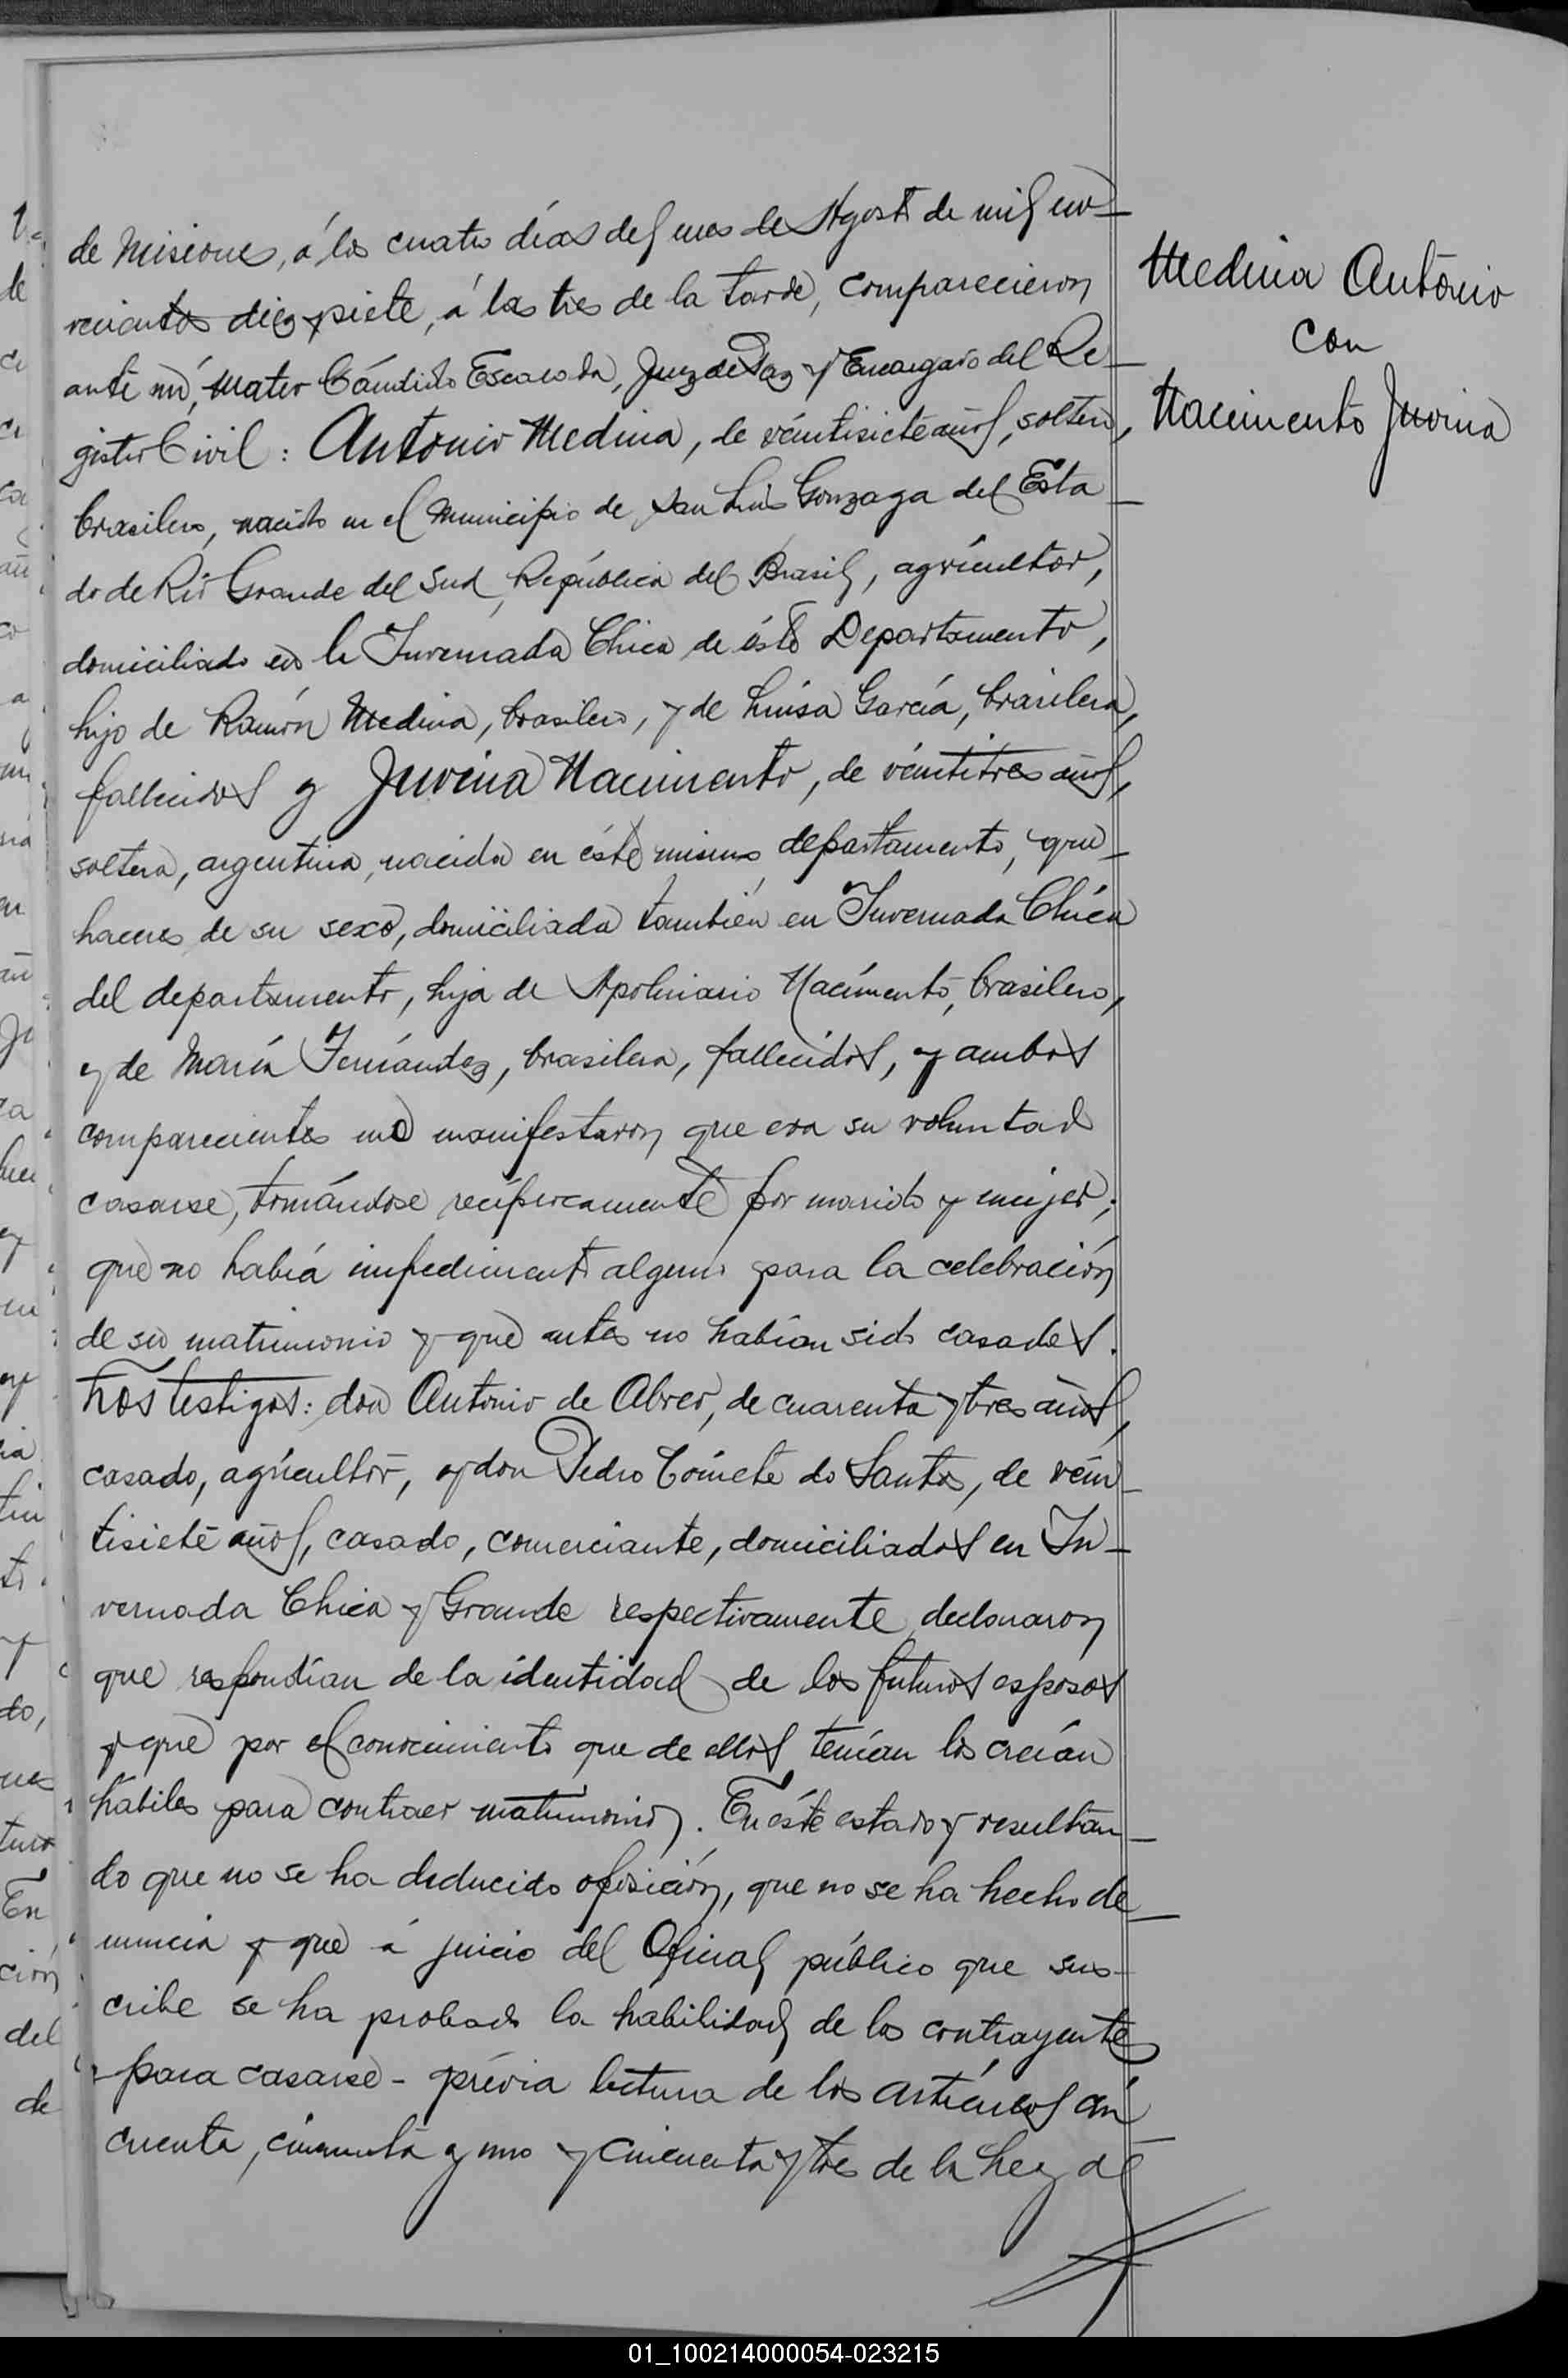 de Misiones, á los cuatro días del mes de Agosto de mil no-
vecientos diez y siete, á las tres de la tarde, comparecieron
ante mí, Mateo Cándido Escalada, Juez de Paz y Encargado del Re-
gistro Civil: Antonio Medina, de veintisiete años, soltero,
brasilero, nacido en el Municipio de San Luis Gonzaga del Esta-
do de Río Grande del Sud, República del Brasil, agricultor,
domiciliado en la Invernada Chica de éste Departamento,
hijo de Ramón Medina, brasilero, y de Luisa García, brasilera,
fallecidos y Juvina Nacimento, de veintitres años,
soltera, argentina, nacida en éste mismo departamento, que-
haceres de su sexo, domiciliada también en Invernada Chica
del departamento, hija de Apolinario Nacimento, brasilero,
y de María Fernández, brasilera, fallecidos, y ambos
comparecientes me manifestaron que era su voluntad
casarse, tomándose recíprocamente por marido y mujer;
que no había impedimento alguno para la celebración
de su matrimonio y que antes no habían sido casados.
Los testigos: don Antonio de Abreo, de cuarenta y tres años,
casado, agricultor, y don Pedro do Santos, de vein-
tisiete años, casado, comerciante, domiciliados en In-
vernada Chica y Grande respectivamente, declararon
que respondían de la identidad de los futuros esposos
y que por el conocimiento que de ellos tenían los creían
hábiles para contraer matrimonio. En éste estado y resultan-
do que no se ha deducido oposición, que no se ha hecho de-
nuncia y que á juicio del Oficial público que sus-
cribe se ha probado la habilidad de los contrayentes
para casarse - prévia lectura de los artículos cin-
cuenta, cincuenta y uno y cincuenta y tres de la Ley de
Medina Antonio
con
Nacimento Juvina
01_100214000054-023215